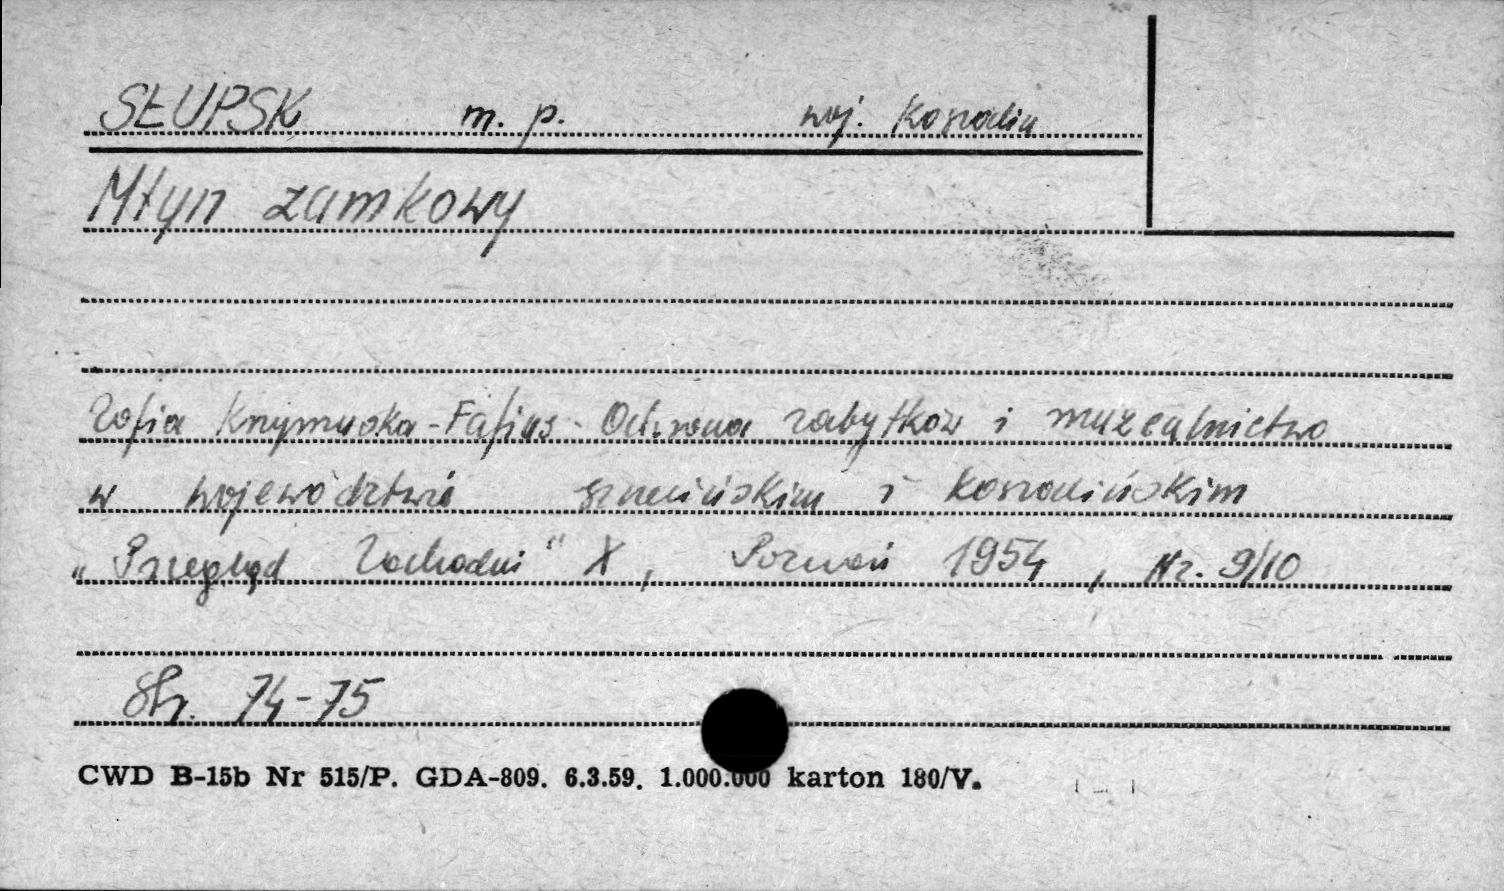 SŁUPSK m. p. woj. Koszalin
Młyn zamkowy
Zofia Krzymuska-Fafius - Ochrona zabytków i muzealnictwo
w województwie szczecińskim i koszalińskim
„Przegląd Zachodni" X, Poznań 1954, Nr. 9/10
Str. 74-75
CWD B-15b Nr 515/P. GDA-809. 6.3.59. 1.000.000 karton 180/V.